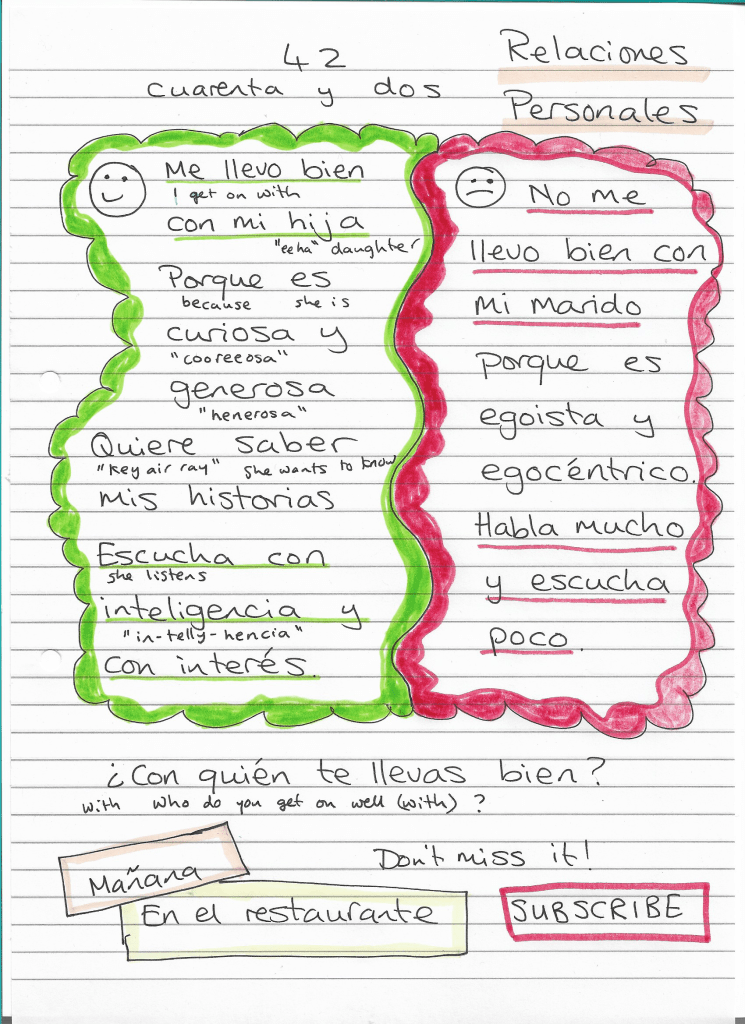 42
cuarenta y dos
Relaciones
Personales
Me llevo bien
I get on with
con mi hija
"eeha" daughter
Porque es
because she is
curiosa y
"cooreeosa"
generosa
"henerosa"
Quiere saber
"key air ray" she wants to know
mis historias
Escucha con
she listens
inteligencia y
"in-telly-hencia"
con interés.
No me
llevo bien con
mi marido
porque es
egoista y
egocéntrico.
Habla mucho
y escucha
poco.
¿Con quién te llevas bien?
with who do you get on well (with) ?
Mañana
En el restaurante
Don't miss it!
SUBSCRIBE